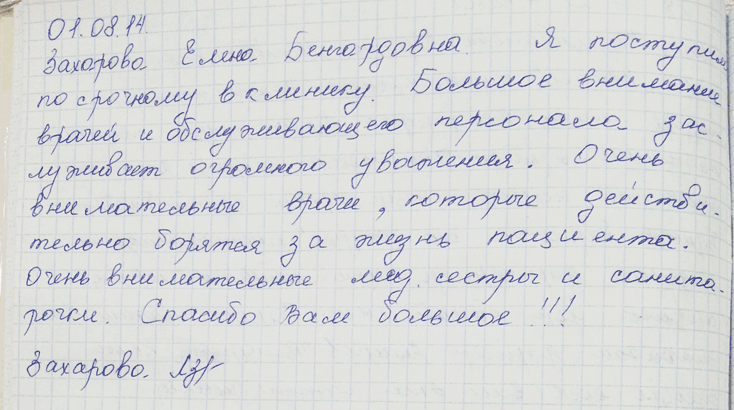 01.08.14.
Захарова Елена Бенгардовна Я поступила
по срочному в клинику. Большое внимание
врачей и обслуживающего персонала зас-
луживает огромного уважения. Очень
внимательные врачи, которые действи-
тельно борятся за жизнь пациента.
Очень внимательные мед. сестры и санита-
рочки. Спасибо Вам большое!!!
Захарова.